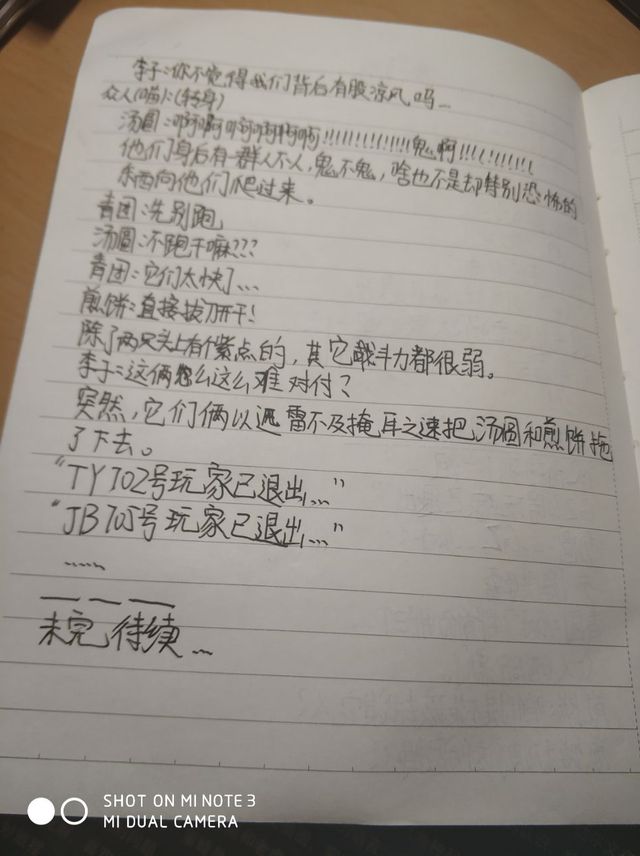 李子:你不觉得我们背后有股凉风吗...
众人(喵):(转身)
汤圆:啊啊啊啊啊啊!!!!!!!!!!!!!!鬼啊!!!!!!!!!!
他们身后有一群人不人,鬼不鬼,啥也不是却特别恐怖的
东西向他们爬过来。
青团:先别跑
汤圆:不跑干嘛???
青团:它们太快了...
煎饼:直接拔刀开干!
除了两只头上有个紫点的,其它战斗力都很弱。
李子:这俩怎么这么难对付?
突然,它们俩以迅雷不及掩耳之速把汤圆和煎饼拖
了下去。
“TY702号玩家已退出...”
“JB705号玩家已退出...”
......
———
未完待续...
SHOT ON MI NOTE 3
MI DUAL CAMERA